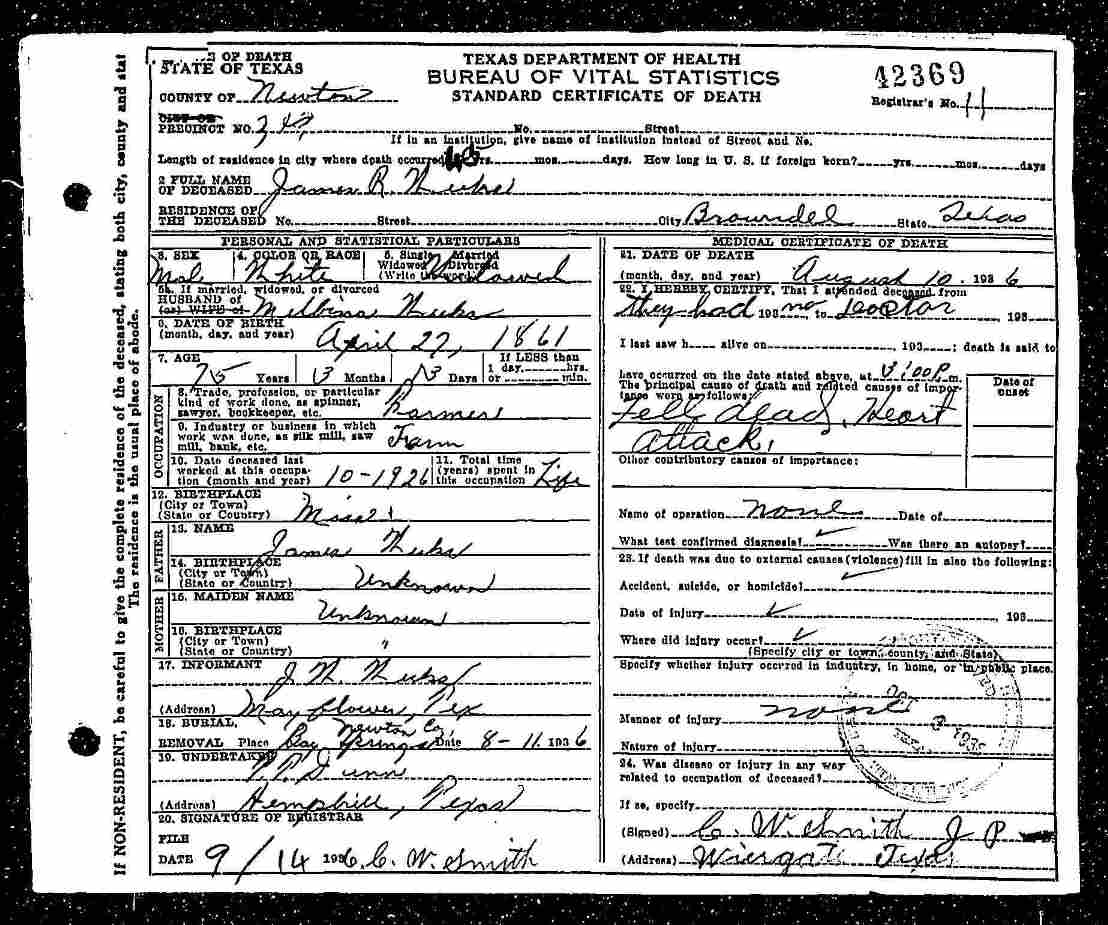 OF DEATH
STATE OF TEXAS
COUNTY OF Newton
TEXAS DEPARTMENT OF HEALTH
BUREAU OF VITAL STATISTICS
STANDARD CERTIFICATE OF DEATH
42369
Registrar's No. 11
PRECINCT NO. No. Street
If in an institution, give name of institution instead of Street and No.
Length of residence in city where death occurred 45 yrs. mos. days. How long in U. S. if foreign born? yrs. mos. days
2 FULL NAME
OF DECEASED James R.
RESIDENCE OF
THE DECEASED No. Street City Browndel State Texas
PERSONAL AND STATISTICAL PARTICULARS
3. SEX 4. COLOR OR RACE 5. Single Married
Widowed Divorced
(Write the word)
Male White Widowed
5a. If married, widowed, or divorced
HUSBAND of
(or) WIFE of Melbina
6. DATE OF BIRTH
(month, day, and year) April 27, 1861
7. AGE If LESS than
75 Years 3 Months 13 Days 1 day, hrs.
or min.
OCCUPATION
8. Trade, profession, or particular
kind of work done, as spinner,
sawyer, bookkeeper, etc. Farmer
9. Industry or business in which
work was done, as silk mill, saw
mill, bank, etc. Farm
10. Date deceased last
worked at this occupa-
tion (month and year) 10-1926
11. Total time
(years) spent in
this occupation Life
12. BIRTHPLACE
(City or Town)
(State or Country) Miss
FATHER
13. NAME James
14. BIRTHPLACE
(City or Town)
(State or Country) Unknown
MOTHER
15. MAIDEN NAME Unknown
16. BIRTHPLACE
(City or Town)
(State or Country) "
17. INFORMANT
(Address) Mayflower, Tex
18. BURIAL, Newton Co,
REMOVAL Place Springs Date 8-11 1936
19. UNDERTAKER Dunn
(Address) Hemphill, Texas
20. SIGNATURE OF REGISTRAR
FILE
DATE 9/14 1936 C. W. Smith
MEDICAL CERTIFICATE OF DEATH
21. DATE OF DEATH
(month, day, and year) August 10. 1936
22. I HEREBY CERTIFY, That I attended deceased from
they had 193 no to Doctor 193
I last saw h alive on , 193 ; death is said to
have occurred on the date stated above, at 3:00 P m.
The principal cause of death and related causes of impor-
tance were as follows:
Date of
onset
Fell dead, Heart
Attack,
Other contributory causes of importance:
Name of operation none Date of
What test confirmed diagnosis? Was there an autopsy?
23. If death was due to external causes (violence) fill in also the following:
Accident, suicide, or homicide?
Date of injury , 193
Where did injury occur?
(Specify city or town, county, and State)
Specify whether injury occurred in industry, in home, or in public place.
Manner of injury none
Nature of injury
24. Was disease or injury in any way
related to occupation of deceased?
If so, specify
(Signed) C. W. Smith J P
(Address) Wiergate Texas
If NON-RESIDENT, be careful to give the complete residence of the deceased, stating both city, county and stat
The residence is the usual place of abode.